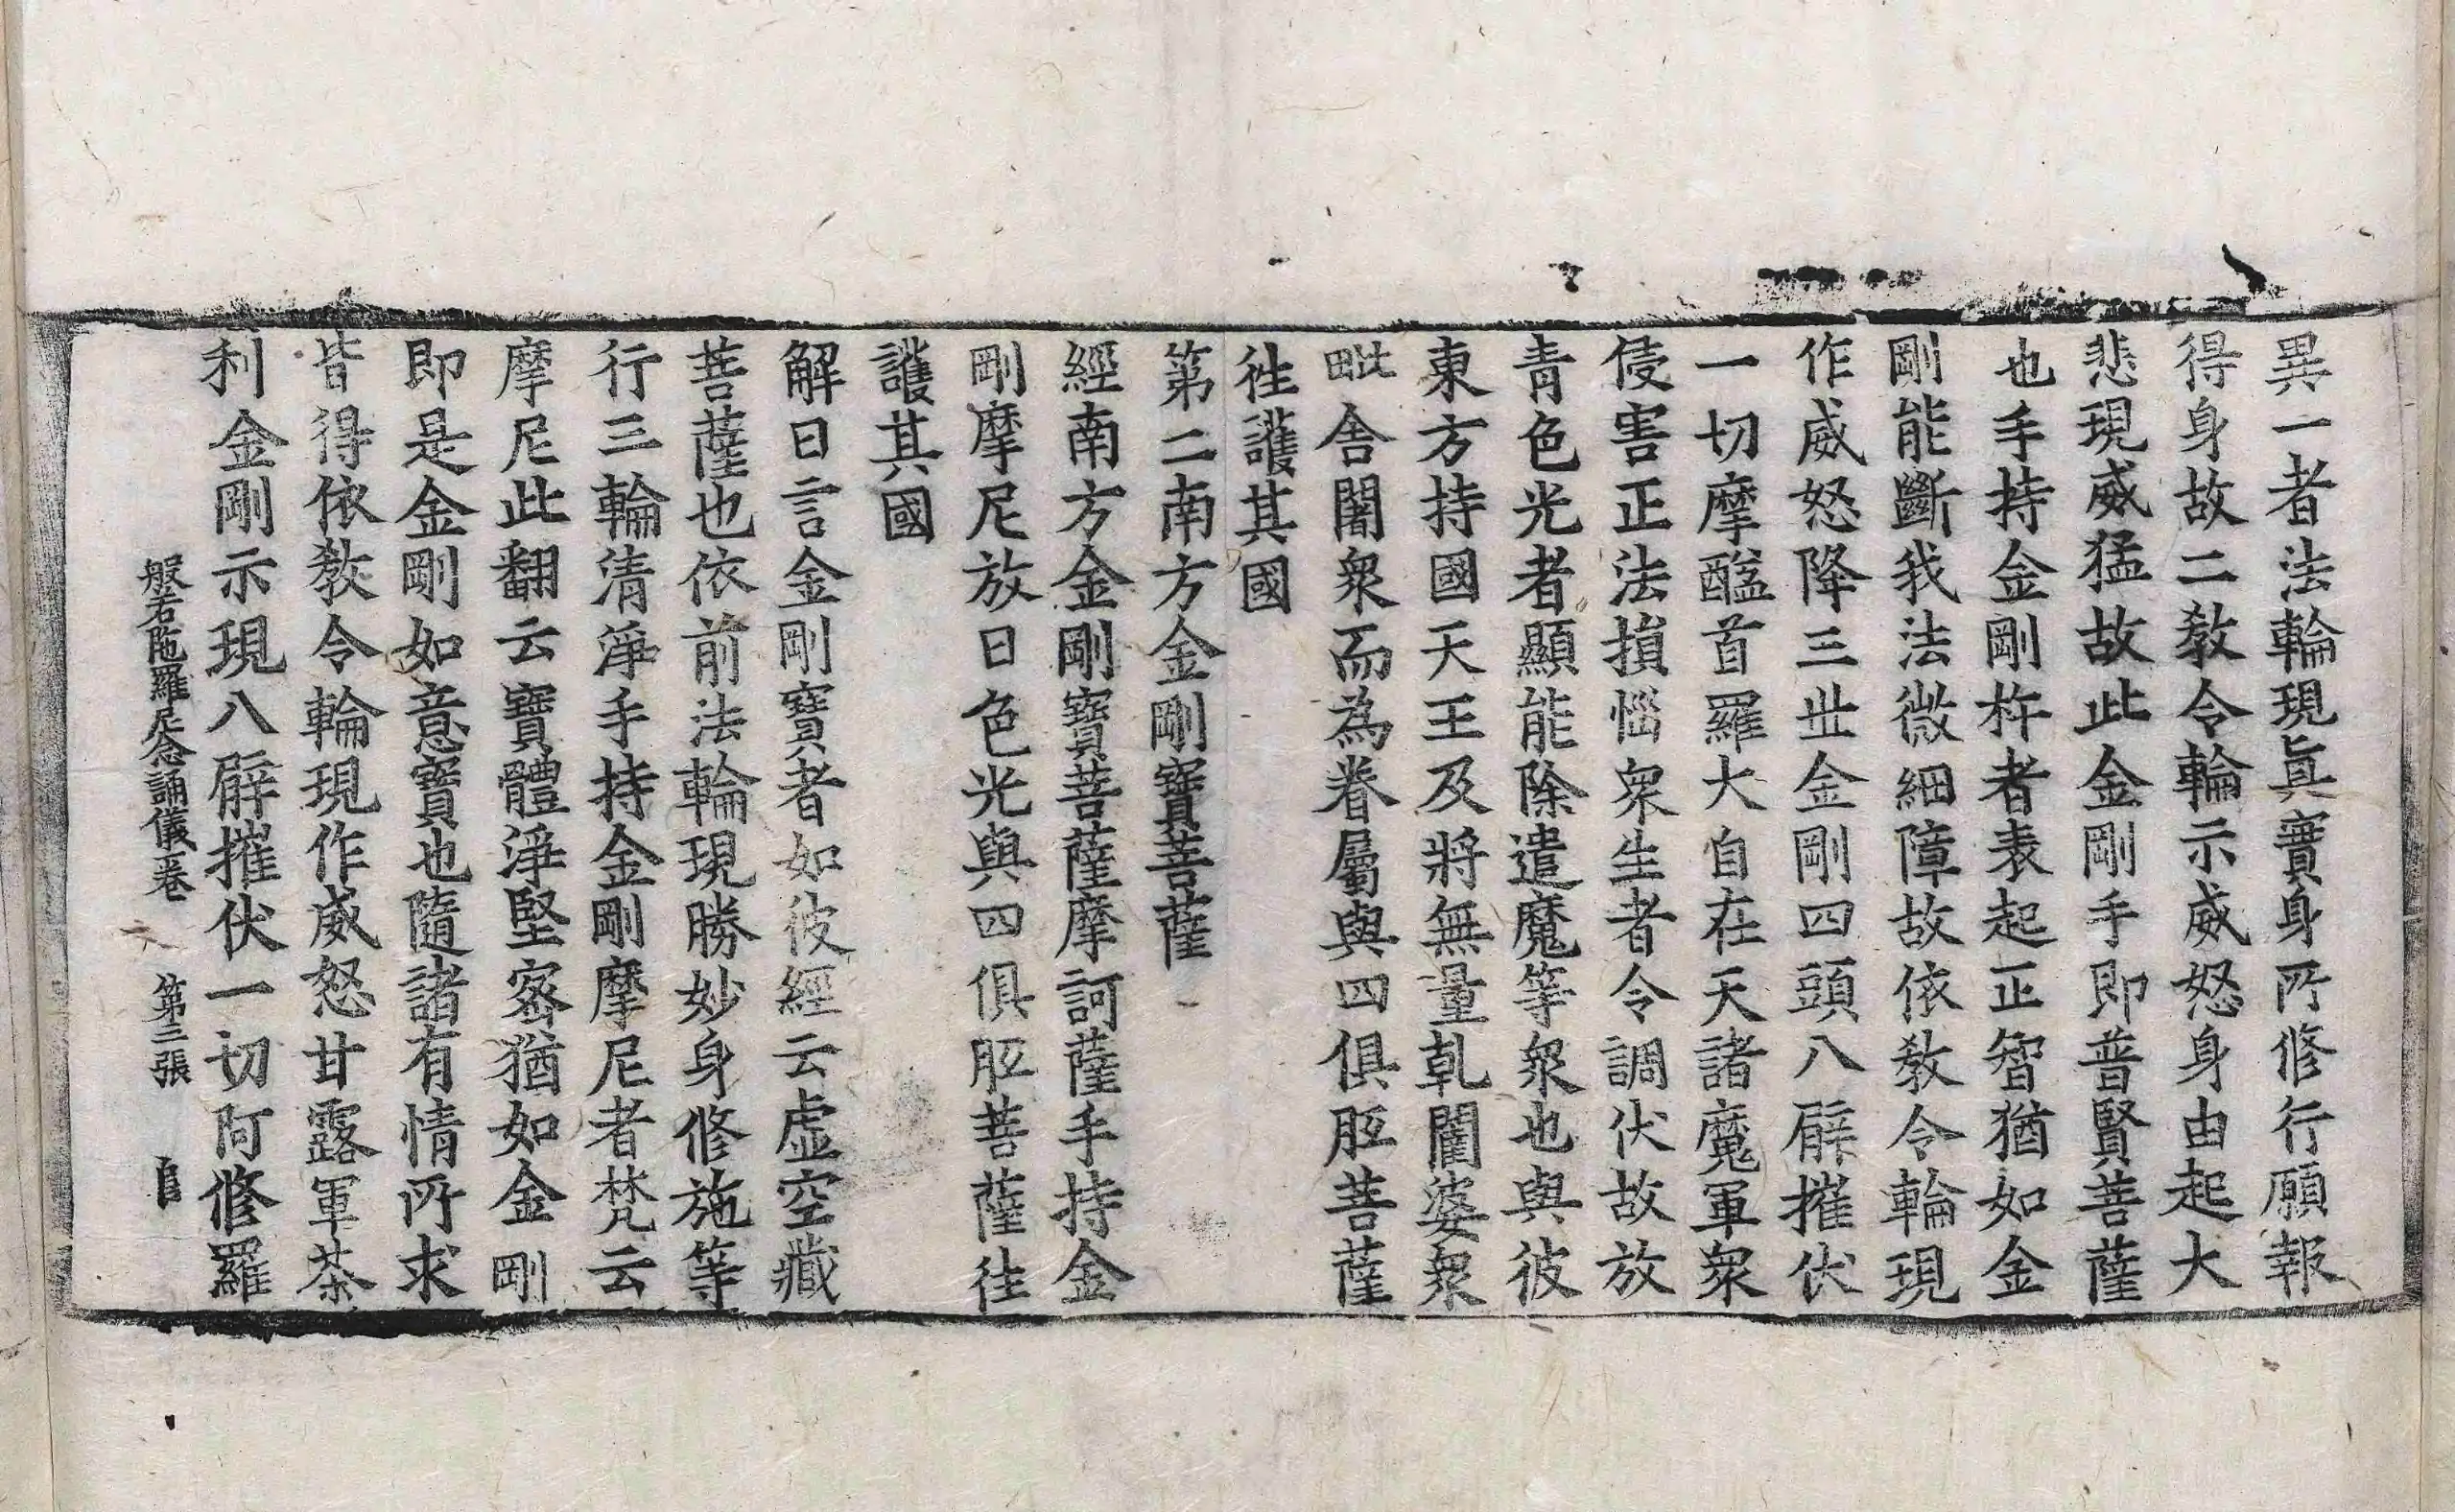 異一者法輪現眞實身所修行願報
得身故二敎令輪示威怒身由起大
悲現威猛故此金剛手即普賢菩薩
也手持金剛杵者表起正智猶如金
剛能斷我法微細障故依敎令輪現
作威怒降三世金剛四頭八臂摧伏
一切摩醯首羅大自在天諸魔軍衆
侵害正法損惱衆生者令調伏故放
青色光者顯能除遣魔等衆也與彼
東方持國天王及將無量乹闥婆衆
毗舎闍衆而為眷屬與四俱胝菩薩
徃護其國
第二南方金剛寳菩薩
經南方金剛寳菩薩摩訶薩手持金
剛摩尼放日色光與四俱胝菩薩徃
護其國
解曰言金剛寳者如彼經云虛空藏
菩薩也依前法輪現勝妙身修施等
行三輪清淨手持金剛摩尼者梵云
摩尼此翻云寳體淨堅密猶如金剛
即是金剛如意寳也隨諸有情所求
皆得依敎令輪現作威怒甘露軍荼
利金剛示現八臂摧伏一切阿修羅
般若陁羅尼念誦儀一卷 第三張 㠯